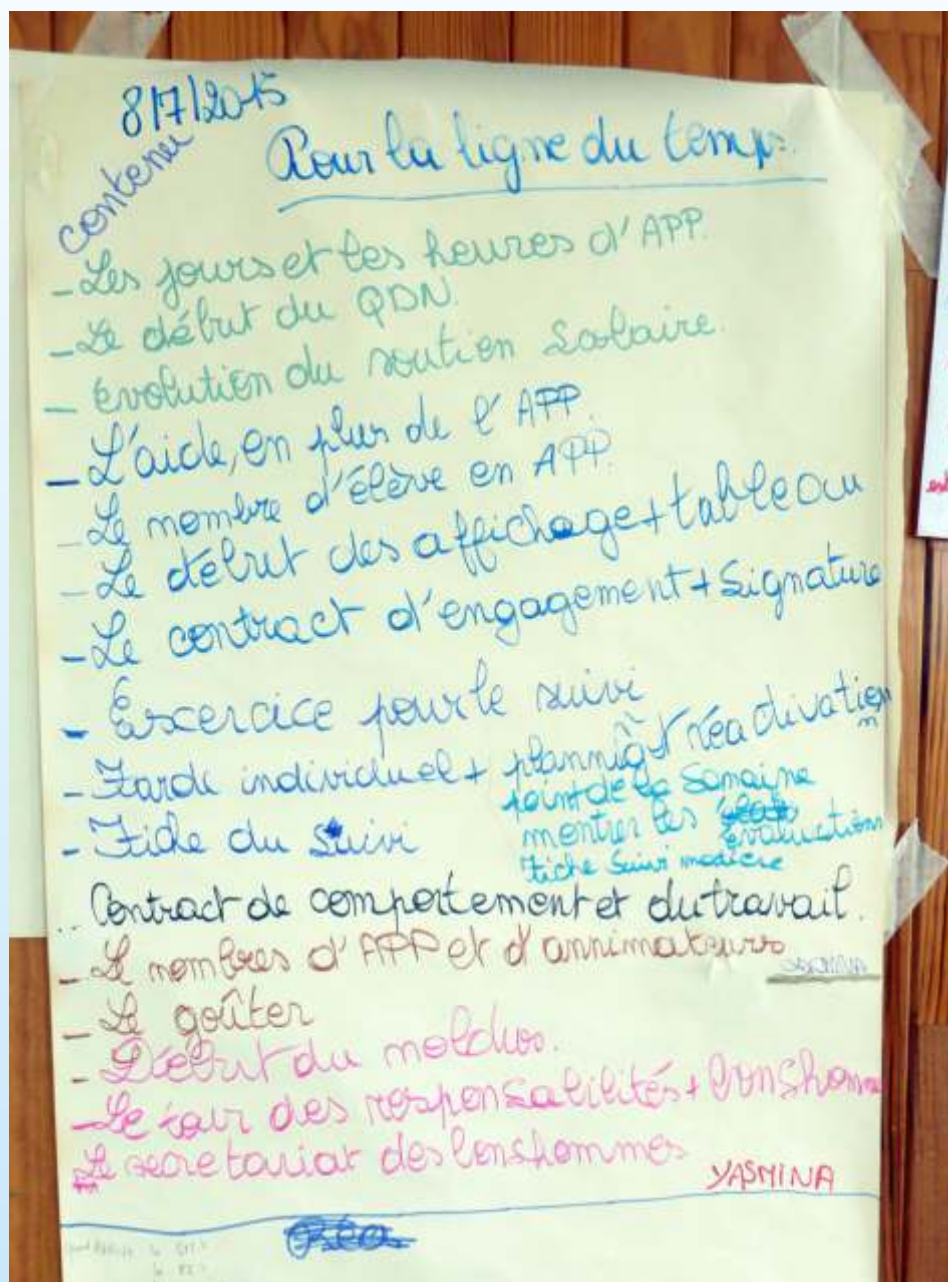 8/7/2015
contenu
Pour la ligne du temps.
- Les jours et les heures d'APP.
- Le début du QDN.
- évolution du soutien Scolaire.
- L'aide, en plus de l'APP.
- Le nombre d'élève en APP.
- Le début des affichage + tableau
- Le contract d'engagement + Signature
- Excercice pour le suivi
- Farde individuel + plannig
- Fiche du Suivi
point de la Semaine
montrer les évaluations
fiche Suivi
Contract de comportement et du travail.
- Le nombres d'APP et d'annimateurs
- Le goûter
- Début du moldus.
- Le tour des responsabilités + bonshomme
Le secretariat des bonshommes
YASMINA